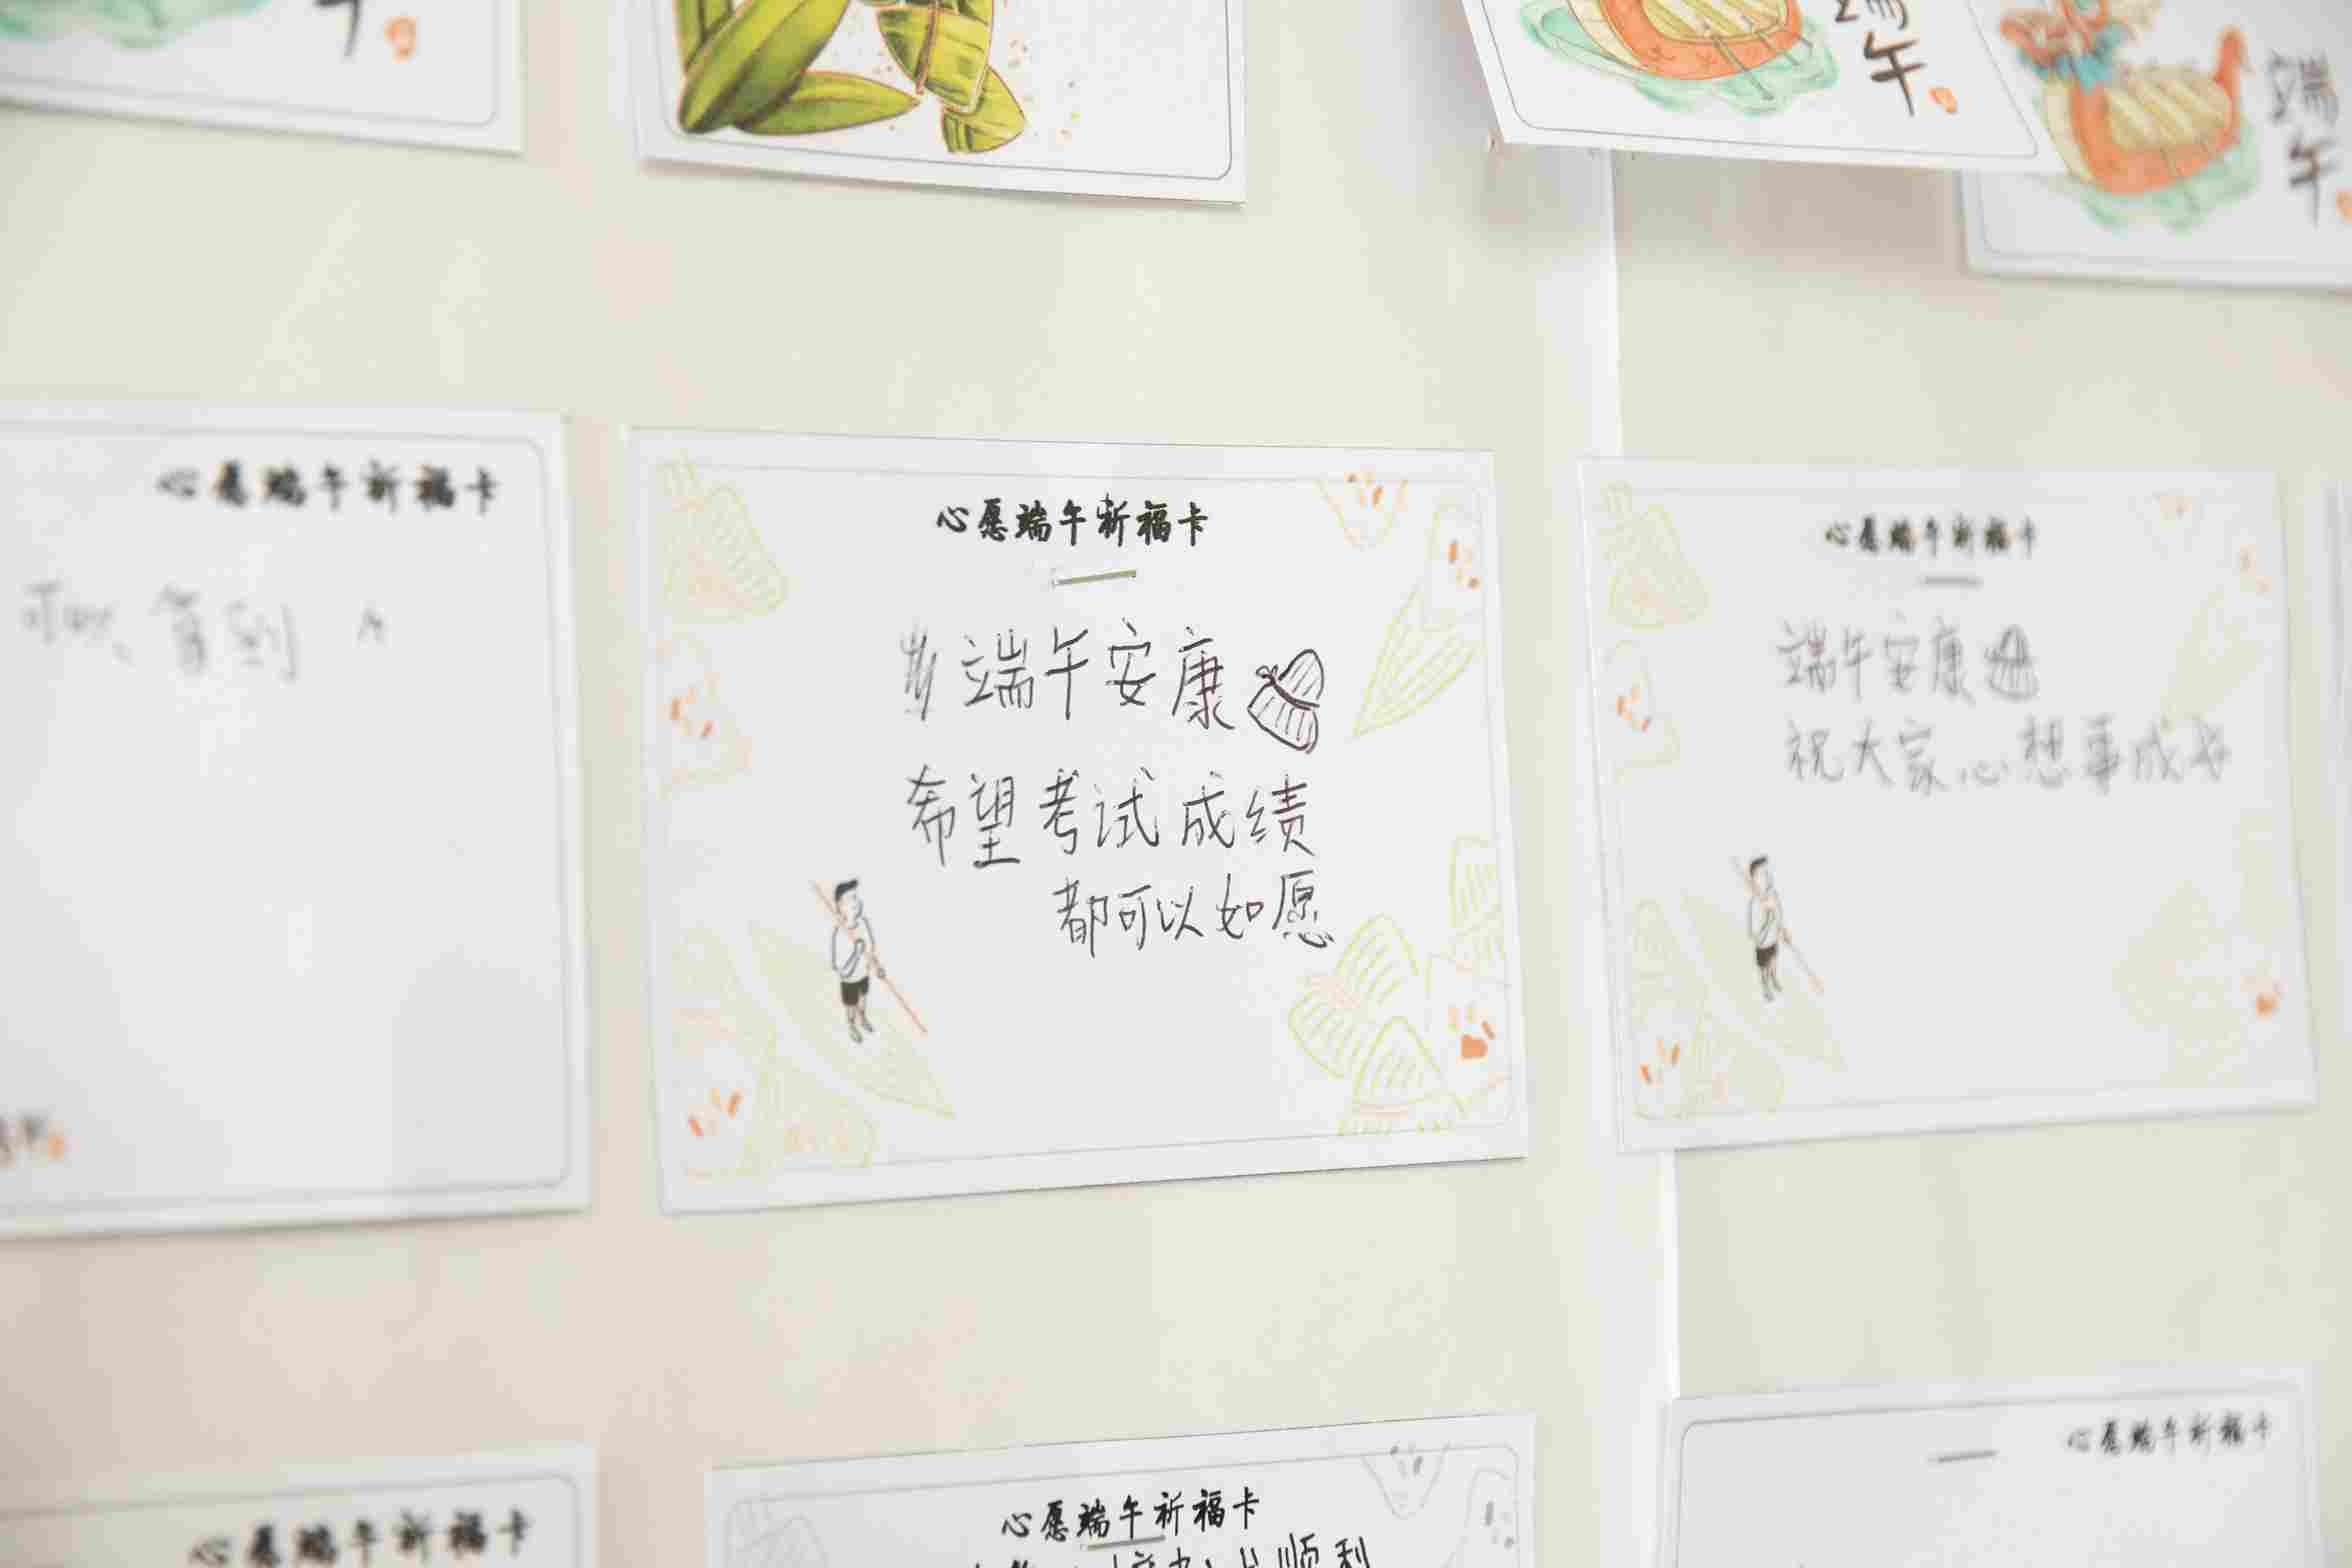 午
端午
端午
心愿端午祈福卡
可以
到
心愿端午祈福卡
端午安康
希望考试成绩
都可以如愿
心愿端午祈福卡
端午安康
祝大家心想事成
心愿端午祈福卡
心愿端午祈福卡
顺利
心愿端午祈福卡